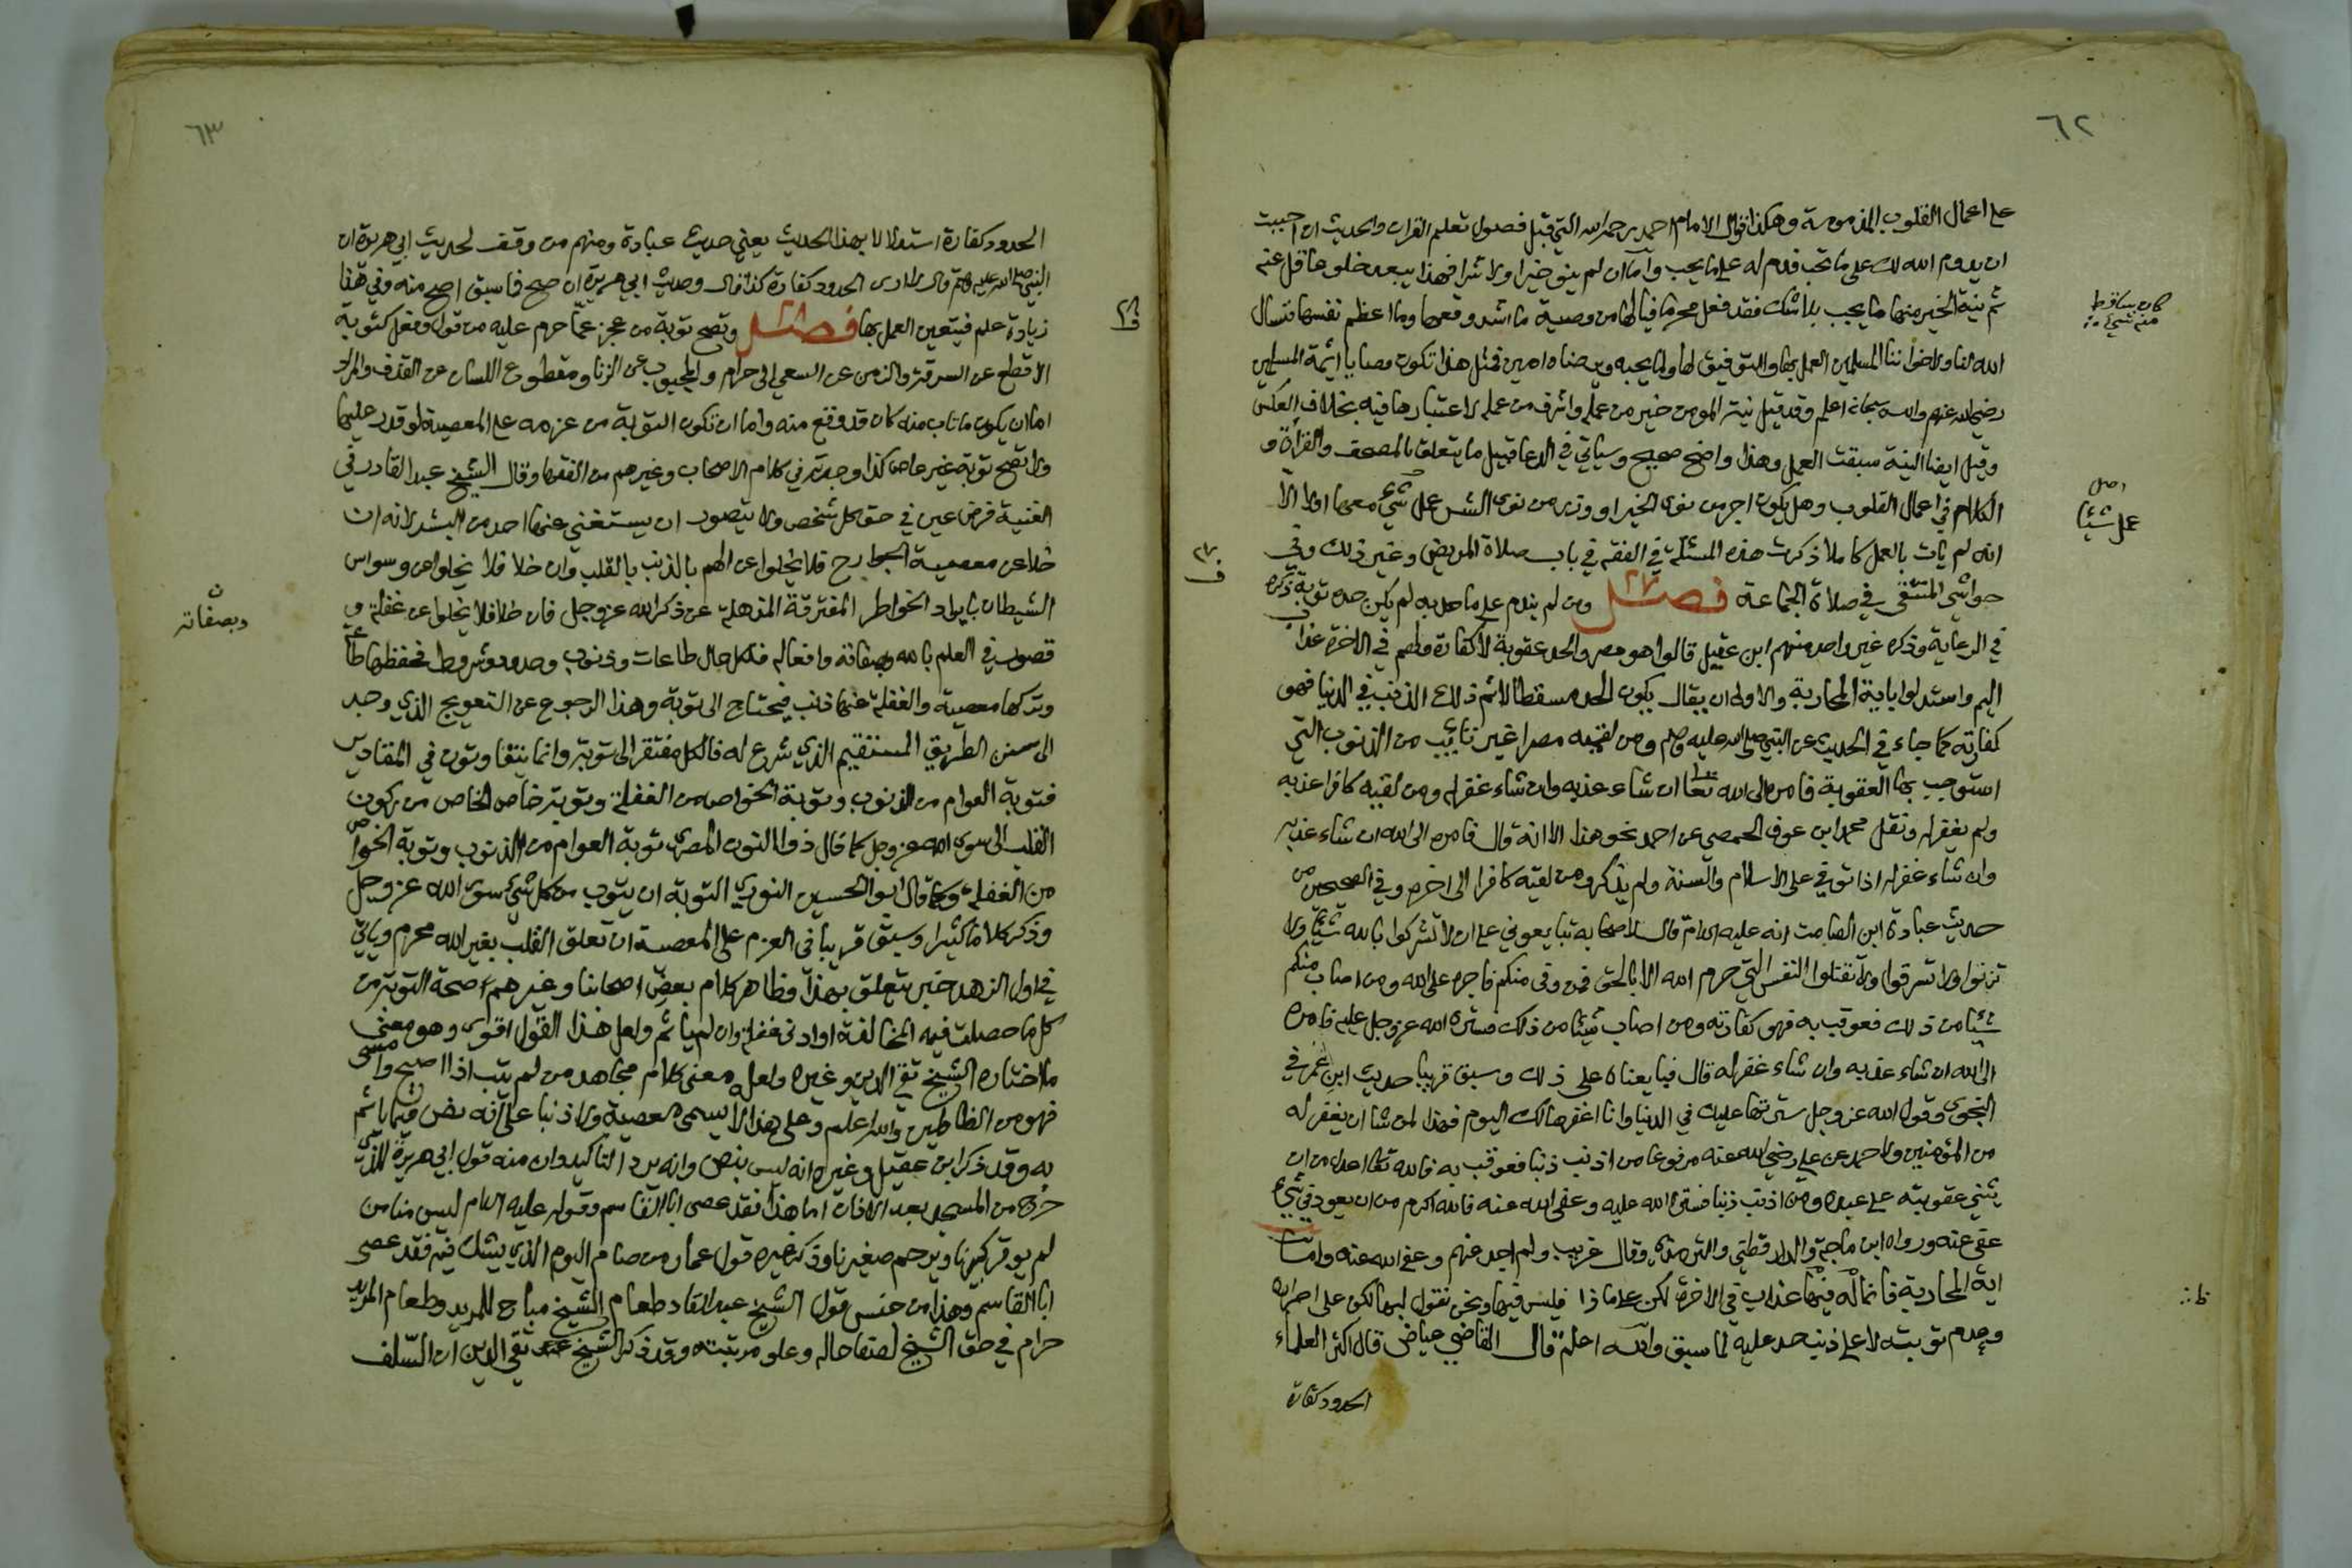 ٦٢
على اعمال القلوب المذمومة وهكذا قول الامام احمد رحمه الله التي قبل فصول تعلم القران والحديث ان احببت
ان يدوم الله لك على ما تحب فدم له على ما يحب وأما ان لم ينو خيرا ولا شرا فهذا يبعد خلو عاقل عنه
ثم نية الخير منها ما يجب بلا شك فقد فعل محرما فيالها من وصية ما اشد وقعها وما اعظم نفسها نسال
كان ساقط
منه شي
الله لنا ولاخواننا المسلمين العمل بها والتوفيق لها ولما يحبه ويرضاه امين فمثل هذا تكون وصايا ائمة المسلمين
رضي الله عنهم والله سبحانه اعلم وقد قيل نية المومن خير من عمله واشرف من عمله لاعتبارها فيه بخلاف العكس
وقيل ايضا النية سبقت العمل وهذا واضح صحيح وسياتي في الدعا قبيل ما يتعلق بالمصحف والقرأة و
الكلام في اعمال القلوب وهل يكون اجر من نوى الخير او وزر من نوى الشر عمل شيء معها اولا الا
اصل
عمل شيئا
انه لم يات بالعمل كاملا ذكرت هذه المسئلة في الفقه في باب صلاة المريض وغير ذلك وفي
حواشي المنتقى في صلاة الجماعة فصل ومن لم يندم على ما حد به لم يكن حده توبة ذكره
في الرعاية وذكره غير واحد منهم ابن عقيل قالوا هو مصر والحد عقوبة لا كفارة ولهم في الاخرة عذاب
اليم واستدلوا باية المحاربة والاولى ان يقال يكون الحد مسقطا لاثم ذلك الذنب في الدنيا فهو
كفارته كما جاء في الحديث عن النبي صلى الله عليه وسلم ومن لقيه مصرا غير تائب من الذنوب التي
استوجب بها العقوبة فامره الى الله تعالى ان شاء عذبه وان شاء غفر له ومن لقيه كافرا عذبه
ولم يغفر له ونقل محمد ابن عوف الحمصي عن احمد نحو هذا الا انه قال فامره الى الله ان شاء عذبه
وان شاء غفر له اذا توفي على الاسلام والسنة ولم يذكر ومن لقيه كافرا الى اخره وفي الصحيحين من
حديث عبادة ابن الصامت انه عليه السلام قال لاصحابه تبايعوني على ان لا تشركوا بالله شيئا ولا
تزنوا ولا تسرقوا ولا تقتلوا النفس التي حرم الله الا بالحق فمن وفى منكم فاجره على الله ومن اصاب منكم
شيئا من ذلك فعوقب به فهو كفارته ومن اصاب شيئا من ذلك فستره الله عز وجل عليه فامره
الى الله ان شاء عذبه وان شاء غفر له قال فبايعناه على ذلك وسبق قريبا حديث ابن عمر في
النجوى وقول الله عز وجل سترتها عليك في الدنيا وانا اغفرها لك اليوم فهذا لمن شا ان يغفر له
من المؤمنين ولاحمد عن علي رضي الله عنه مرفوعا من اذنب ذنبا فعوقب به فالله تعا اعدل من ان
يثني عقوبته على عبده ومن اذنب ذنبا فستره الله عليه وعفى الله عنه فالله اكرم من ان يعود في شيء
عفى عنه ورواه ابن ماجة والدارقطني والترمذي وقال غريب ولم اجد فيهم وعفى الله عنه واما
اية المحاربة فانما له فيها عذاب في الاخرة لكن على ماذا فليس فيها ونحن نقول ليها لكن على اصراره
وعدم توبته لا على ذنب حد عليه لما سبق والله اعلم قال القاضي عياض قال اكثر العلماء
الحدود كفارة
٦٣
الحدود كفارة استدلالا بهذا الحديث يعني حديث عبادة ومنهم من وقف لحديث ابي هريرة ان
النبي صلى الله عليه وسلم قال لا ادري الحدود كفارة كذا قال وحديث ابي هريرة ان صح فما سبق اصح منه وفي هذا
زيادة علم فيتعين العمل بها فصل وتصح توبة من عجز عما حرم عليه من قول وفعل كتوبة
الاقطع عن السرقة والزمن عن السعي الى حرام والمجبوب عن الزنا ومقطوع اللسان عن القذف والمراد
اما ان يكون ما تاب منه كان قد وقع منه واما ان تكون التوبة من عزمه على المعصية لو قدر عليها
ولا تصح توبة غير عاص كذا وجدته في كلام الاصحاب وغيرهم من الفقها وقال الشيخ عبد القادر في
الغنية فرض عين في حق كل شخص ولا يتصور ان يستغني عنها احد من البشر لانه ان
خلا عن معصية الجوارح فلا يخلوا عن الهم بالذنب بالقلب وان خلا فلا يخلوا عن وسواس
الشيطان بايراد الخواطر المفترقة المذهلة عن ذكر الله عز وجل فان خلا فلا يخلوا عن غفلة و
وبصفاته
قصور في العلم بالله وبصفاته وافعاله فلكل حال طاعات وذنوب وحدود وشروط فحفظها طاعة
وتركها معصية والغفلة عنها ذنب فيحتاج الى توبة وهذا الرجوع عن التعويج الذي وجد
الى سنن الطريق المستقيم الذي شرع له فالكل مفتقر الى توبة وانما يتفاوتون في المقادير
فتوبة العوام من الذنوب وتوبة الخواص من الغفلة وتوبة خاص الخاص من ركون
القلب الى سوى الله عز وجل كما قال ذو النون المصري توبة العوام من الذنوب وتوبة الخواص
من الغفلة وكما قال ابو الحسين النوري التوبة ان يتوب من كل شي سوى الله عز وجل
وذكر كلاما كثيرا وسبق قريبا في العزم على المعصية ان تعلق القلب بغير الله محرم وياتي
في اول الزهد خبر يتعلق بهذا وظاهر كلام بعض اصحابنا وغيرهم صحة التوبة من
كل ما حصلت فيه المخالفة او ادنى غفلة وان لم ياثم ولعل هذا القول اقوى وهو معنى
ما اختاره الشيخ تقي الدين وغيره ولعل معنى كلام مجاهد من لم يتب اذا اصبح وامسى
فهو من الظالمين والله اعلم وعلى هذا لا يسمى معصية ولا ذنبا على انه نص فيما ياثم
به وقد ذكر ابن عقيل وغيره انه ليس بنص وانه يرد التاكيد وان منه قول ابي هريرة للذي
خرج من المسجد بعد الاذان اما هذا فقد عصى ابا القاسم وقوله عليه السلام ليس منا من
لم يوقر كبيرنا ويرحم صغيرنا وذكر غيره قول عمار من صام اليوم الذي يشك فيه فقد عصى
ابا القاسم وهذا من جنس قول الشيخ عبد القادر طعام الشيخ مباح للمريد وطعام المريد
حرام في حق الشيخ لصفا حاله وعلو مرتبته وقد ذكر الشيخ تقي الدين ان السلف